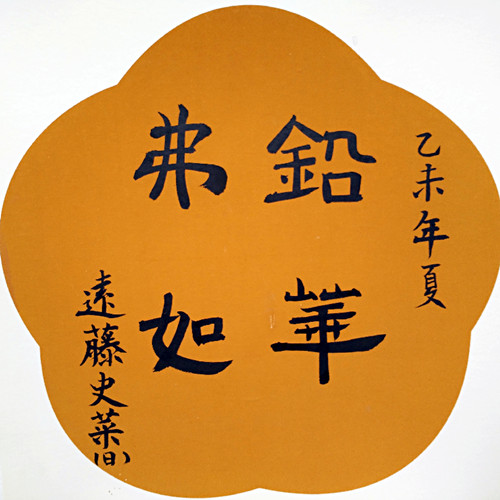 乙未年夏
鉛華
弗如
遠藤史菜